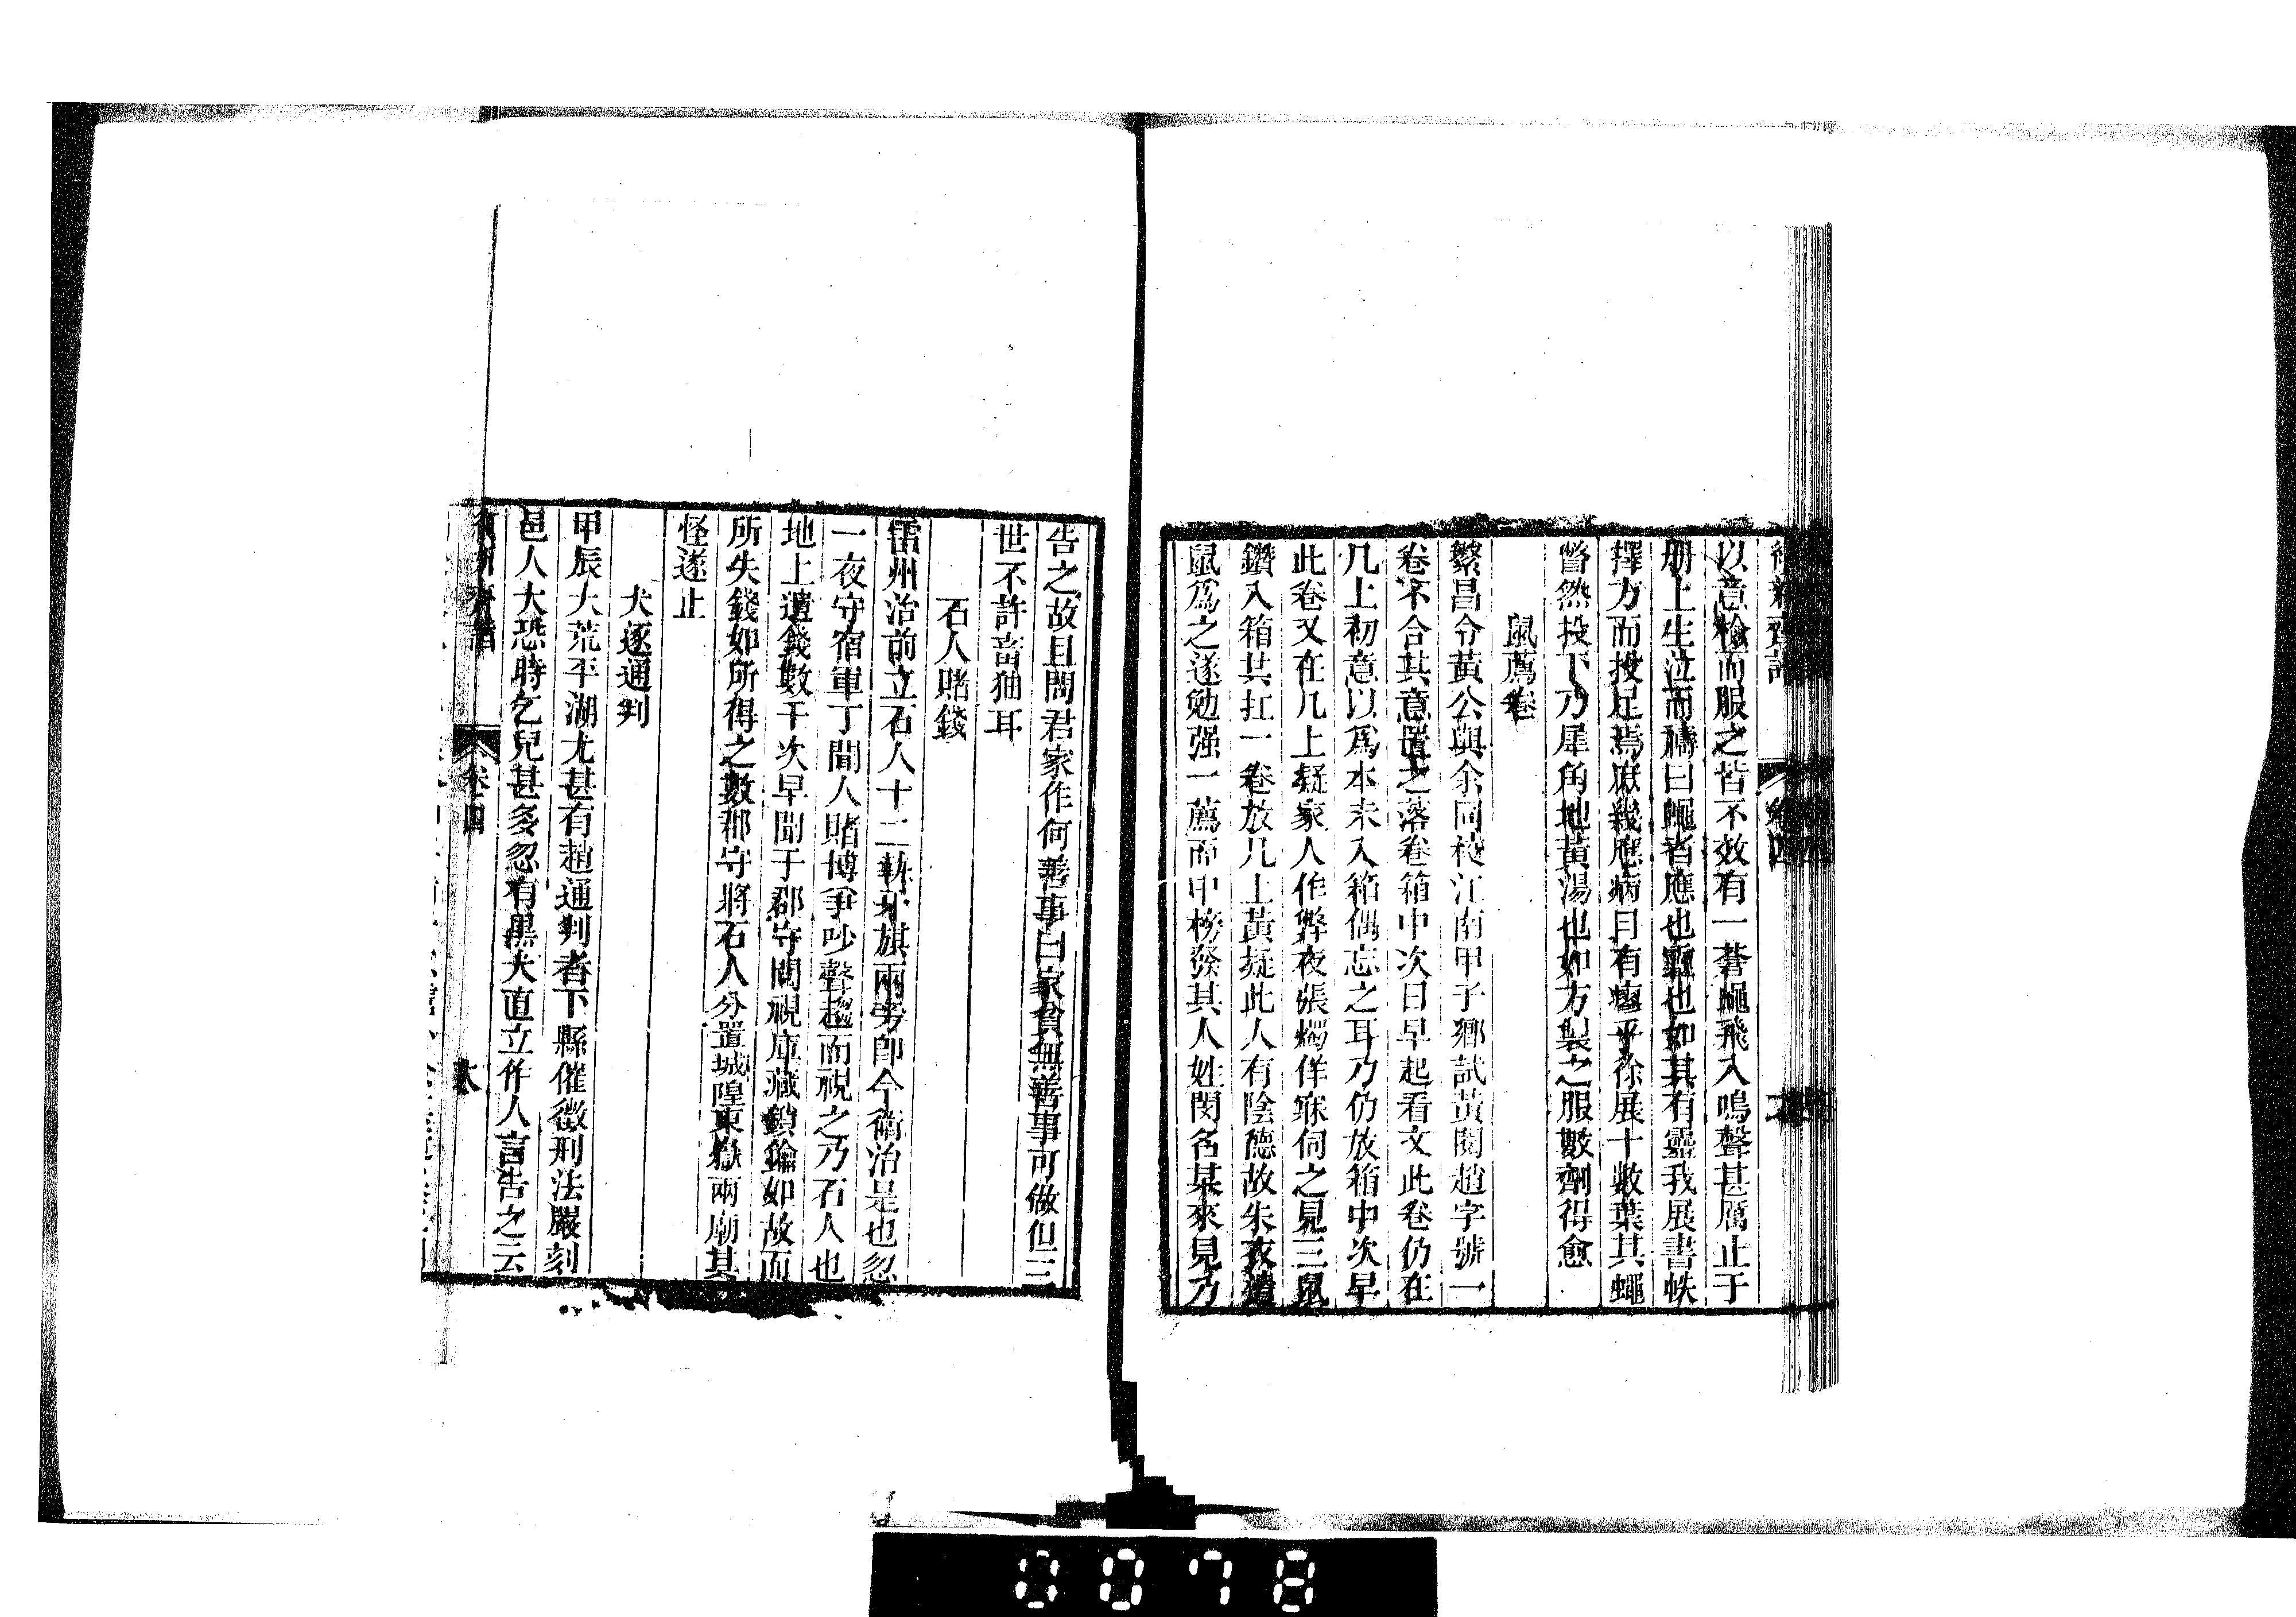 續新齊諧 卷四
以意檢而服之皆不效有一蒼蠅飛入鳴聲甚厲止于
册上生泣而禱曰蠅者應也靈也如其有靈我展書帙
擇方而投足焉庶幾應病曰有瘳乎徐展十數葉其蠅
瞥然投下乃犀角地黃湯也如方製之服數劑得愈
鼠薦卷
繁昌令黃公與余同校江南甲子鄉試黃閱趙字號一
卷不合其意置之落卷箱中次日早起看文此卷仍在
几上初意以爲本未入箱偶忘之耳乃仍放箱中次早
此卷又在几上疑家人作弊夜張燭佯寐伺之見三鼠
鑽入箱共扛一卷放几上黃疑此人有陰德故朱衣遣
鼠爲之遂勉强一薦而中榜發其人姓閔名某來見乃
告之故且問君家作何善事曰家貧無善事可做但三
世不許畜猫耳
石人賭錢
雷州治前立石人十二執牙旗兩旁卽今衛治是也忽
一夜守宿軍丁聞人賭博爭吵聲趨而視之乃石人也
地上遺錢數千次早聞于郡守閱視庫藏鎖鑰如故而
所失錢如所得之數郡守將石人分置城隍東嶽兩廟其
怪遂止
犬逐通判
甲辰大荒平湖尤甚有趙通判者下縣催徵刑法嚴刻
邑人大恐時乞兒甚多忽有黑犬直立作人言告之云
卷四
0078